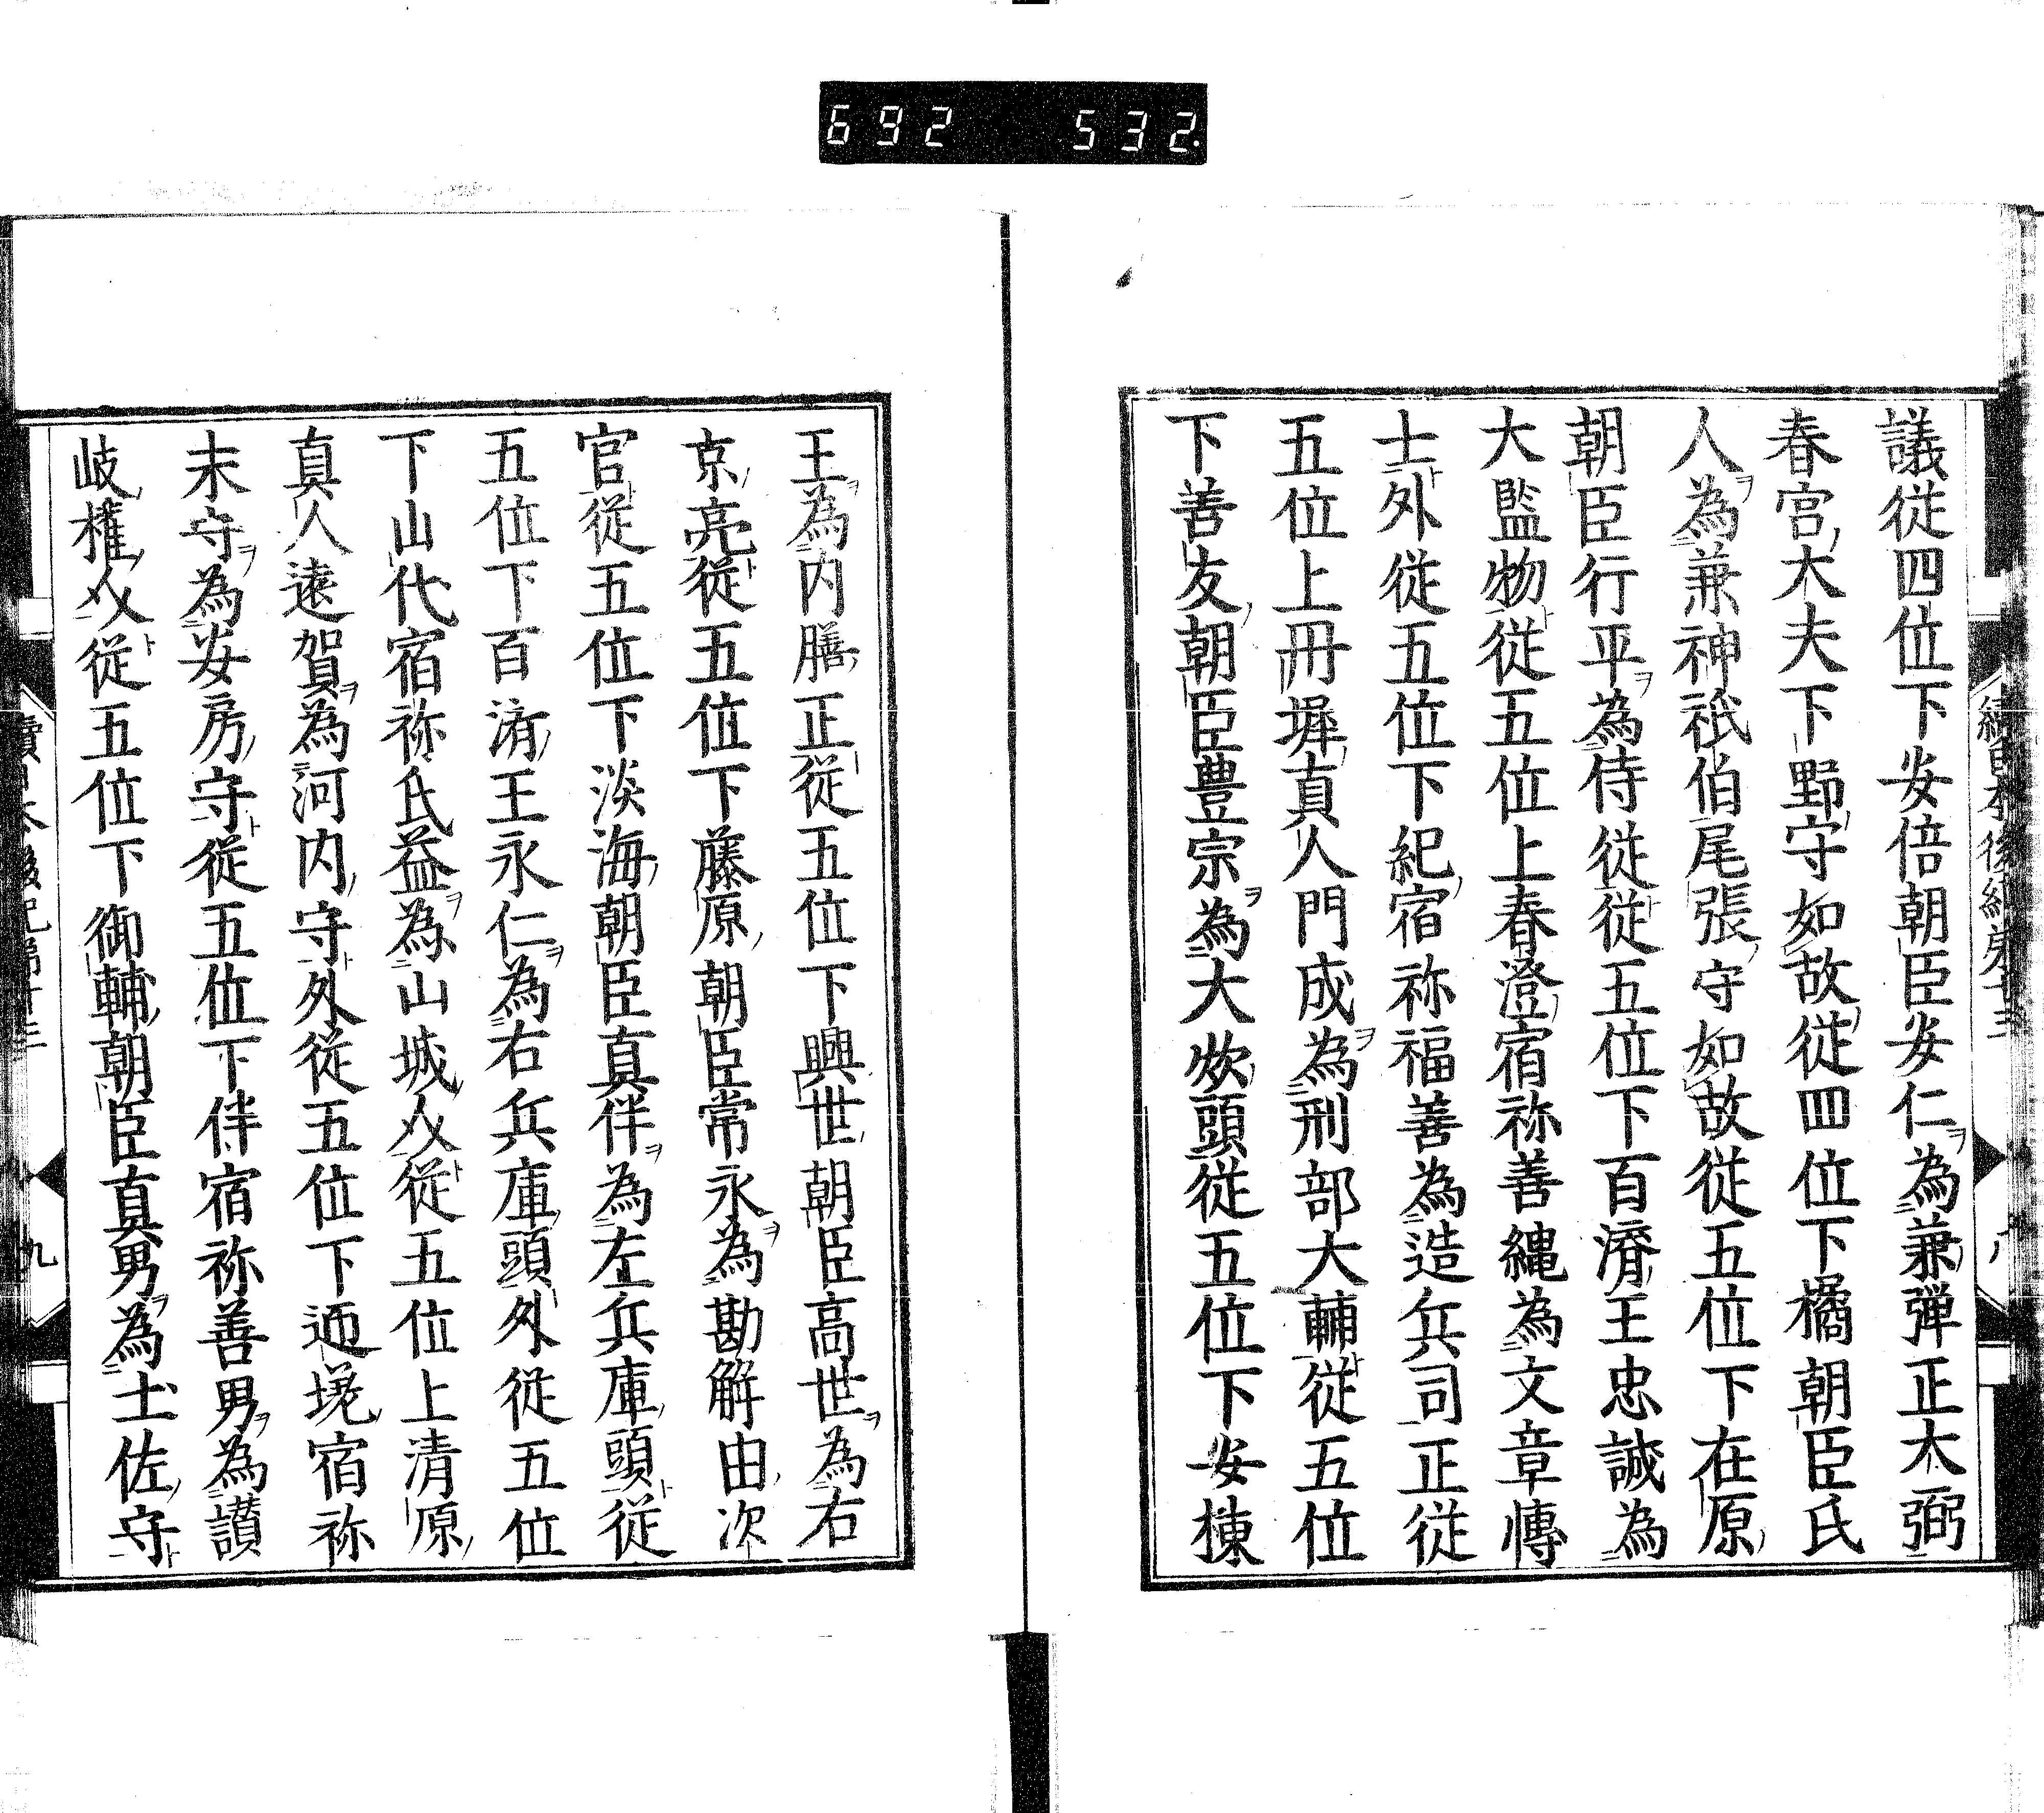 692 532.
議従四位下安倍朝臣安仁為兼弾正大弼
春宮大夫下野守如故従四位下橘朝臣氏
人為兼神祇伯尾張守如故従五位下在原
朝臣行平為侍従従五位下百濟王忠誠為
大監物従五位上春澄宿祢善縄為文章博
士外従五位下紀宿祢福善為造兵司正従
五位上丹墀真人門成為刑部大輔従五位
下善友朝臣豊宗為大炊頭従五位下安棟
王為内膳正従五位下興世朝臣高世為右
京亮従五位下藤原朝臣常永為勘解由次
官従五位下淡海朝臣真伴為左兵庫頭従
五位下百濟王永仁為右兵庫頭外従五位
下山代宿祢氏益為山城介従五位上清原
真人遠賀為河内守外従五位下迊墝宿祢
末守為安房守従五位下伴宿祢善男為讃
岐権介従五位下御輔朝臣真男為土佐守
九